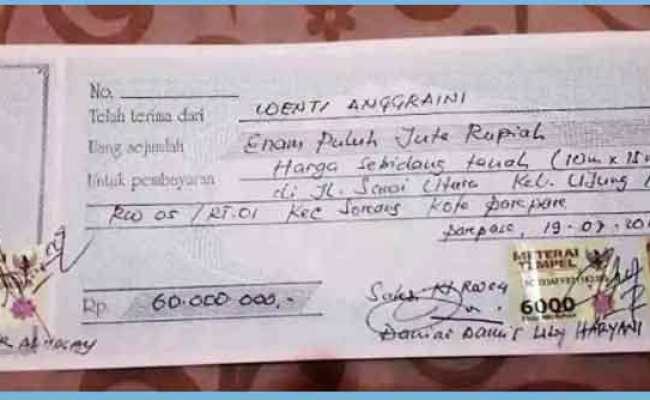 No.
Telah terima dari WENTI ANGGRAINI
Uang sejumlah Enam Puluh Juta Rupiah
Untuk pembayaran Harga Sebidang tanah (10m x 15m
di Jl. Sawi Utara Kel. Ujung
RW 05 / RT.01 Kec Soreang Kota Parepare
Parepare, 19-07-20
METERAI
TEMPEL
6000
Rp. 60.000.000,-
Saksi
HARYANI